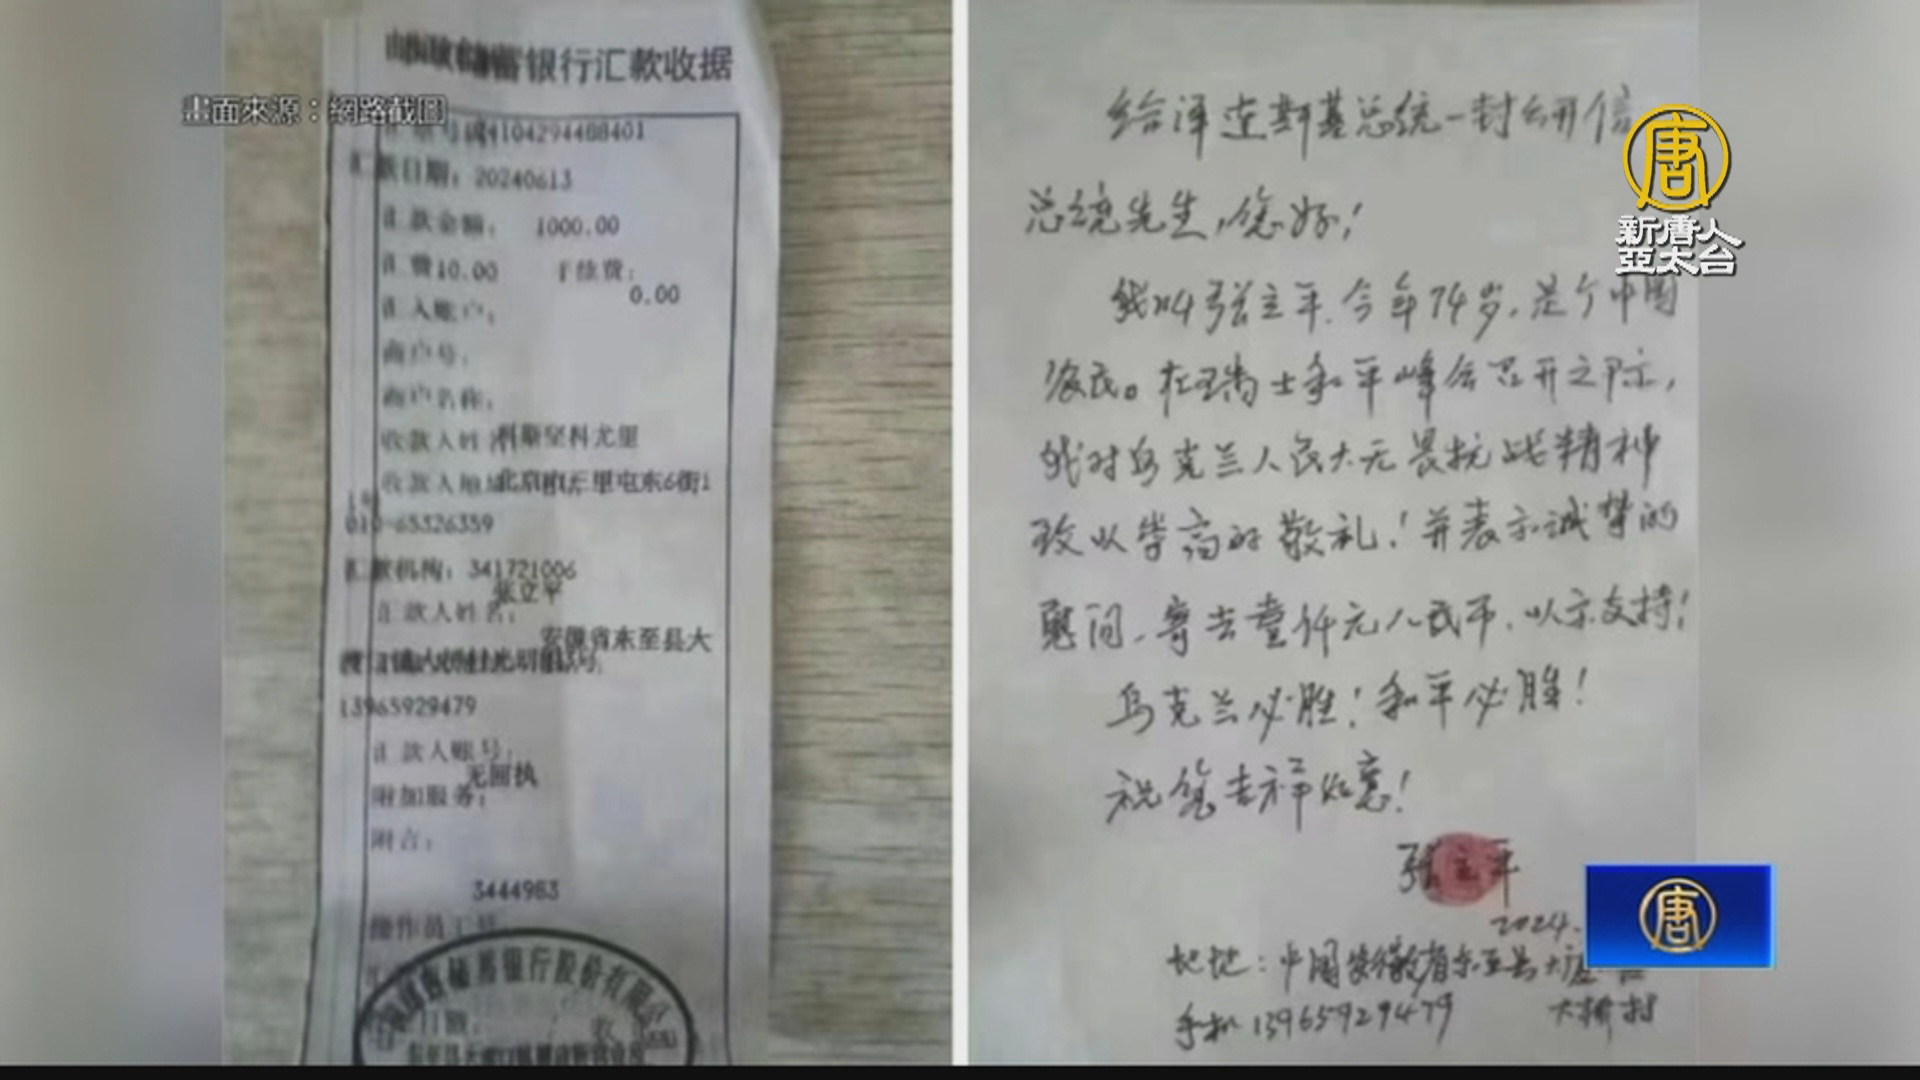 畫面來源：網路截圖
邮政储蓄银行汇款收据
汇票号码4104294488401
汇款日期：20240613
汇款金额：1000.00
汇费10.00 手续费：
0.00
汇入账户：
商户号：
商户名称：
收款人姓名 科斯坚科尤里
收款人地址 北京市三里屯东6街1
1号
010-65326359
汇款机构：341721006
张立平
汇款人姓名：
安徽省东至县大
13965929479
汇款人账号：
无回执
附加服务：
附言：
3444983
操作员工号
邮政储蓄银行股份有限公司
日期：
给泽连斯基总统一封公开信
总统先生，您好！
我叫张立平.今年74岁，是个中国
农民。在瑞士和平峰会召开之际，
我对乌克兰人民大无畏抗战精神
致以崇高的敬礼！并表示诚挚的
慰问，寄去壹仟元人民币，以示支持！
乌克兰必胜！和平必胜！
祝您吉祥如意！
张立平
2024.
地址：中国安徽省东至县大渡
手机13965929479 大桥村
唐
新唐人
亞太台
唐